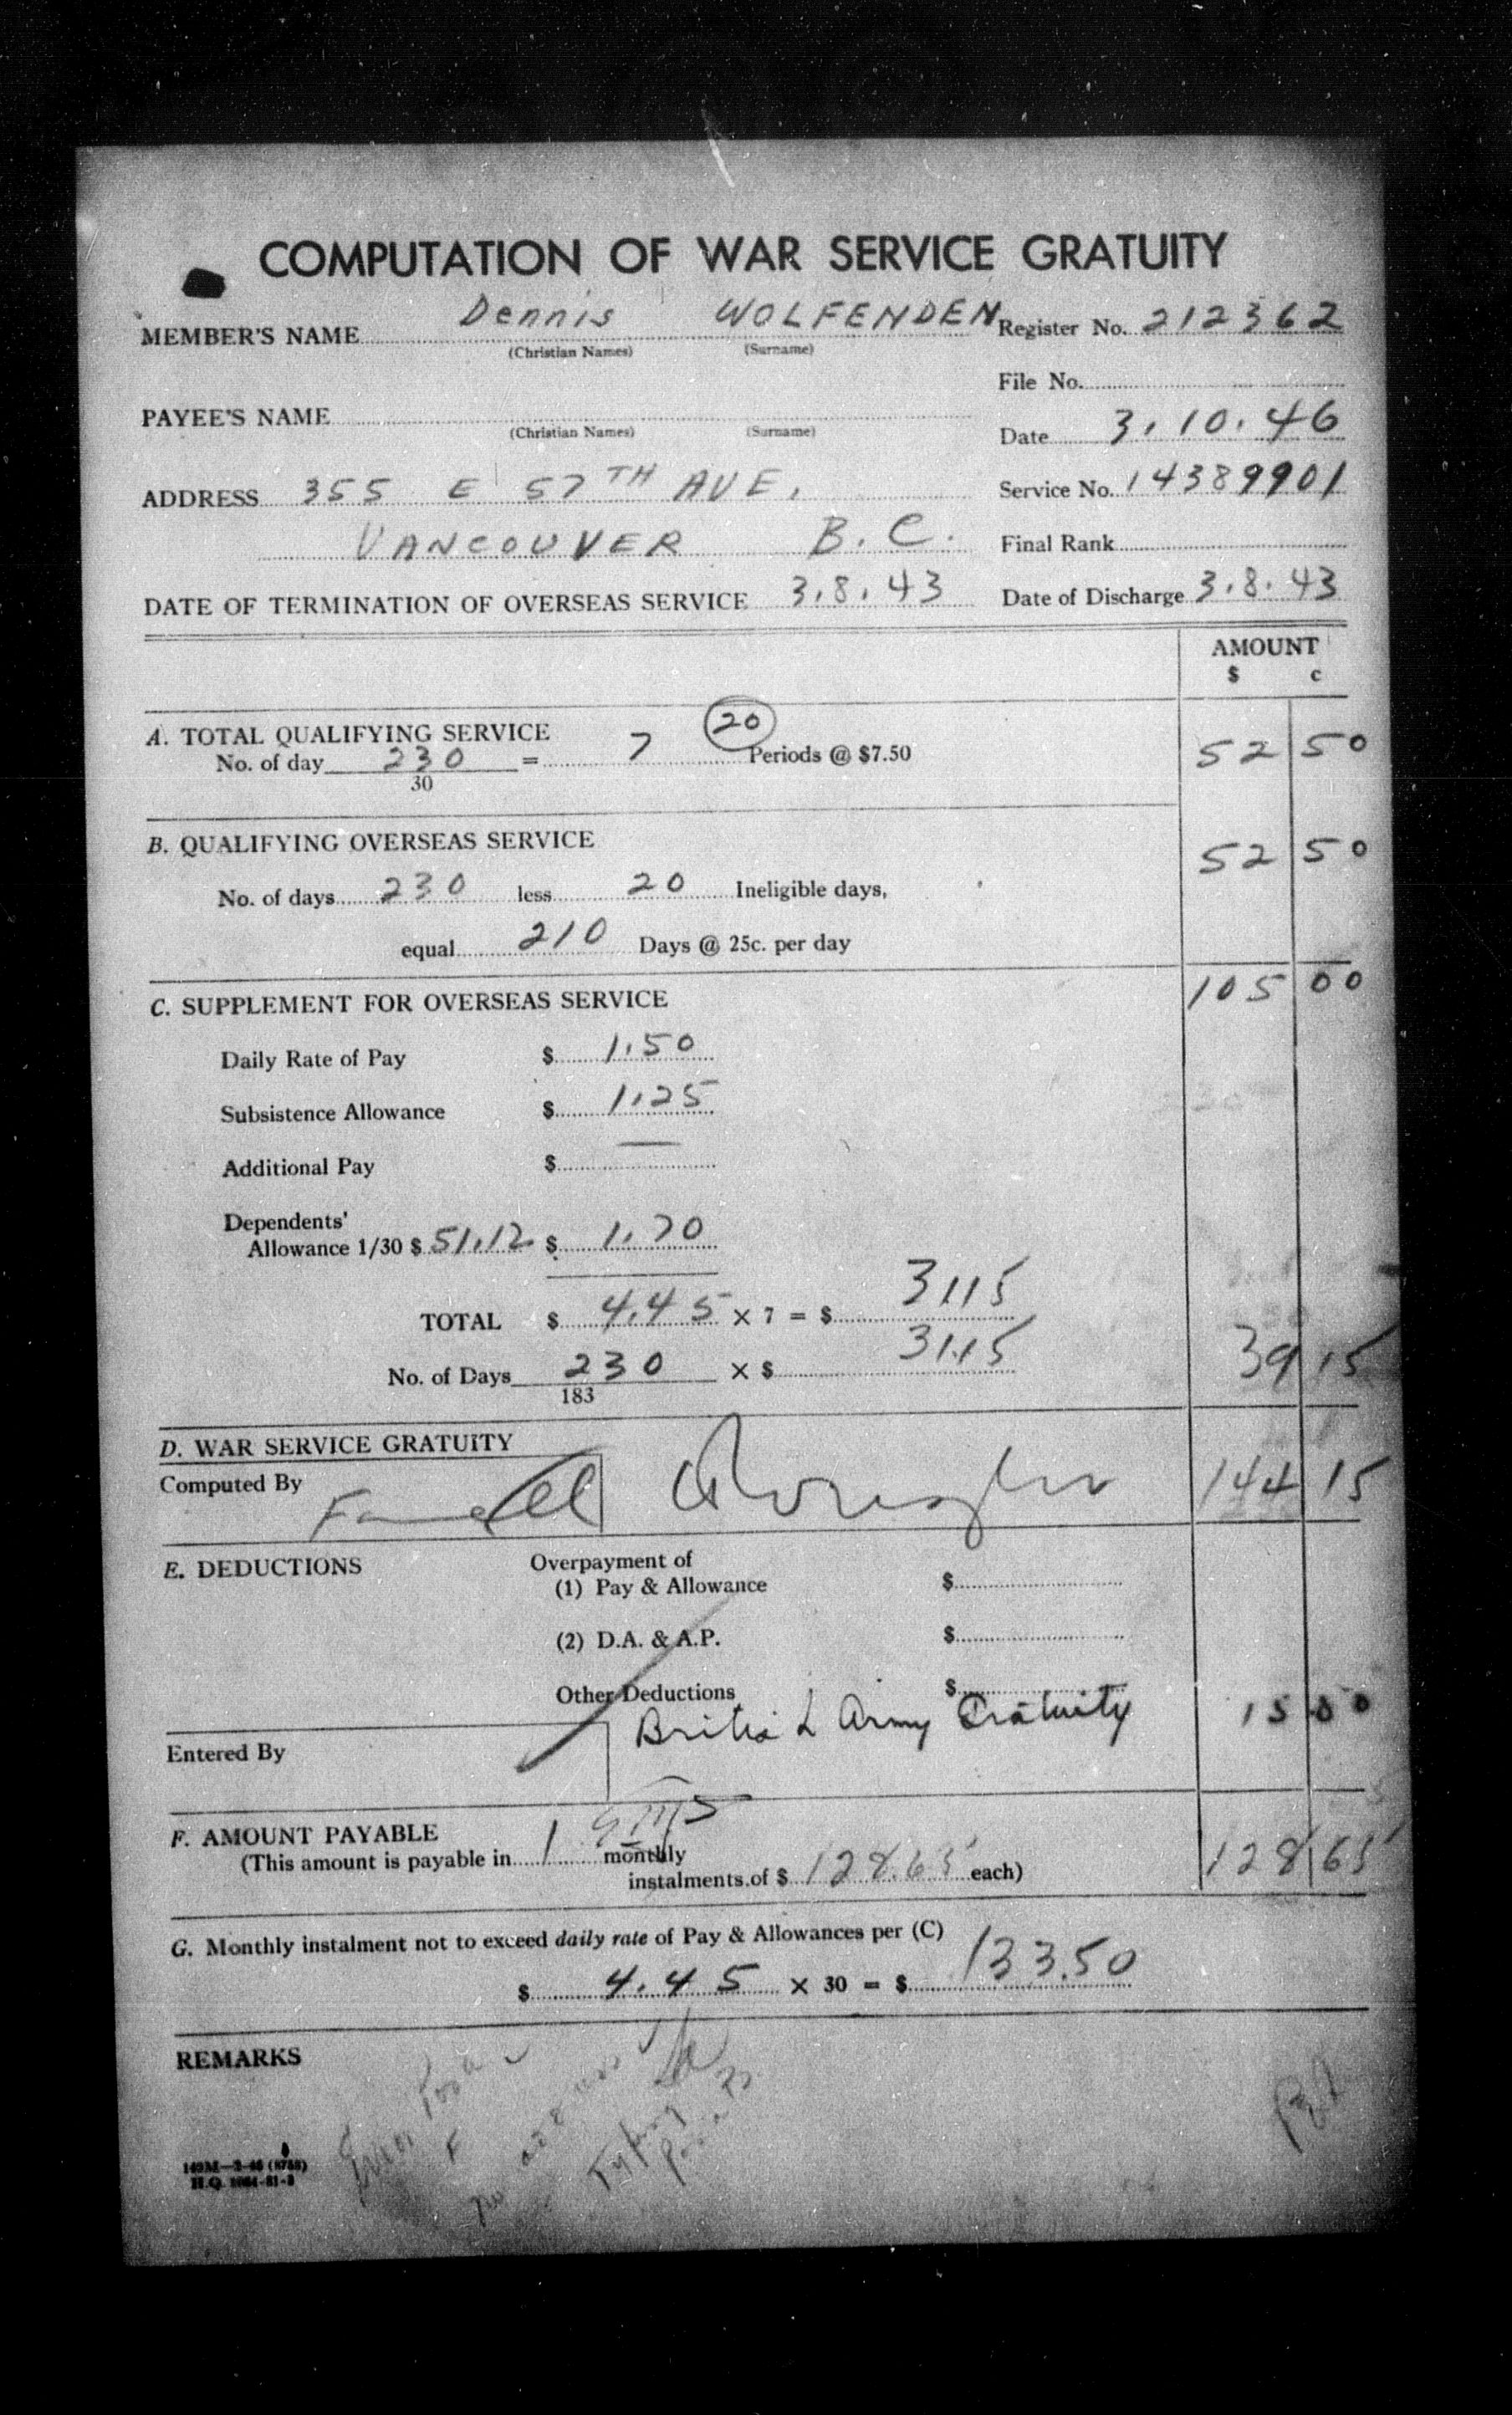 COMPUTATION OF WAR SERVICE GRATUITY
MEMBER'S NAME Dennis WOLFENDEN Register No. 212362
(Christian Names) (Surname)
File No.
PAYEE'S NAME
(Christian Names) (Surname)
Date 3.10.46
ADDRESS 355 E 57TH AVE, Service No. 14389901
VANCOUVER B.C. Final Rank
DATE OF TERMINATION OF OVERSEAS SERVICE 3.8.43 Date of Discharge 3.8.43
AMOUNT
$ c
A. TOTAL QUALIFYING SERVICE 20
No. of day 230 = 7 Periods @ $7.50 52 50
30
B. QUALIFYING OVERSEAS SERVICE 52 50
No. of days 230 less 20 Ineligible days,
equal 210 Days @ 25c. per day
105 00
C. SUPPLEMENT FOR OVERSEAS SERVICE
Daily Rate of Pay $ 1.50
Subsistence Allowance $ 1.25
Additional Pay $ —
Dependents'
Allowance 1/30 $ 51.12 $ 1.70
TOTAL $ 4.45 × 7 = $ 31.15
No. of Days 230 × $ 31.15 39 15
183
D. WAR SERVICE GRATUITY
Computed By 144 15
E. DEDUCTIONS Overpayment of
(1) Pay & Allowance $
(2) D.A. & A.P. $
Other Deductions $
British Army Gratuity 15 50
Entered By
F. AMOUNT PAYABLE
(This amount is payable in 1 monthly
instalments of $ 128.65 each) 128 65
G. Monthly instalment not to exceed daily rate of Pay & Allowances per (C)
$ 4.45 × 30 = $ 133.50
REMARKS